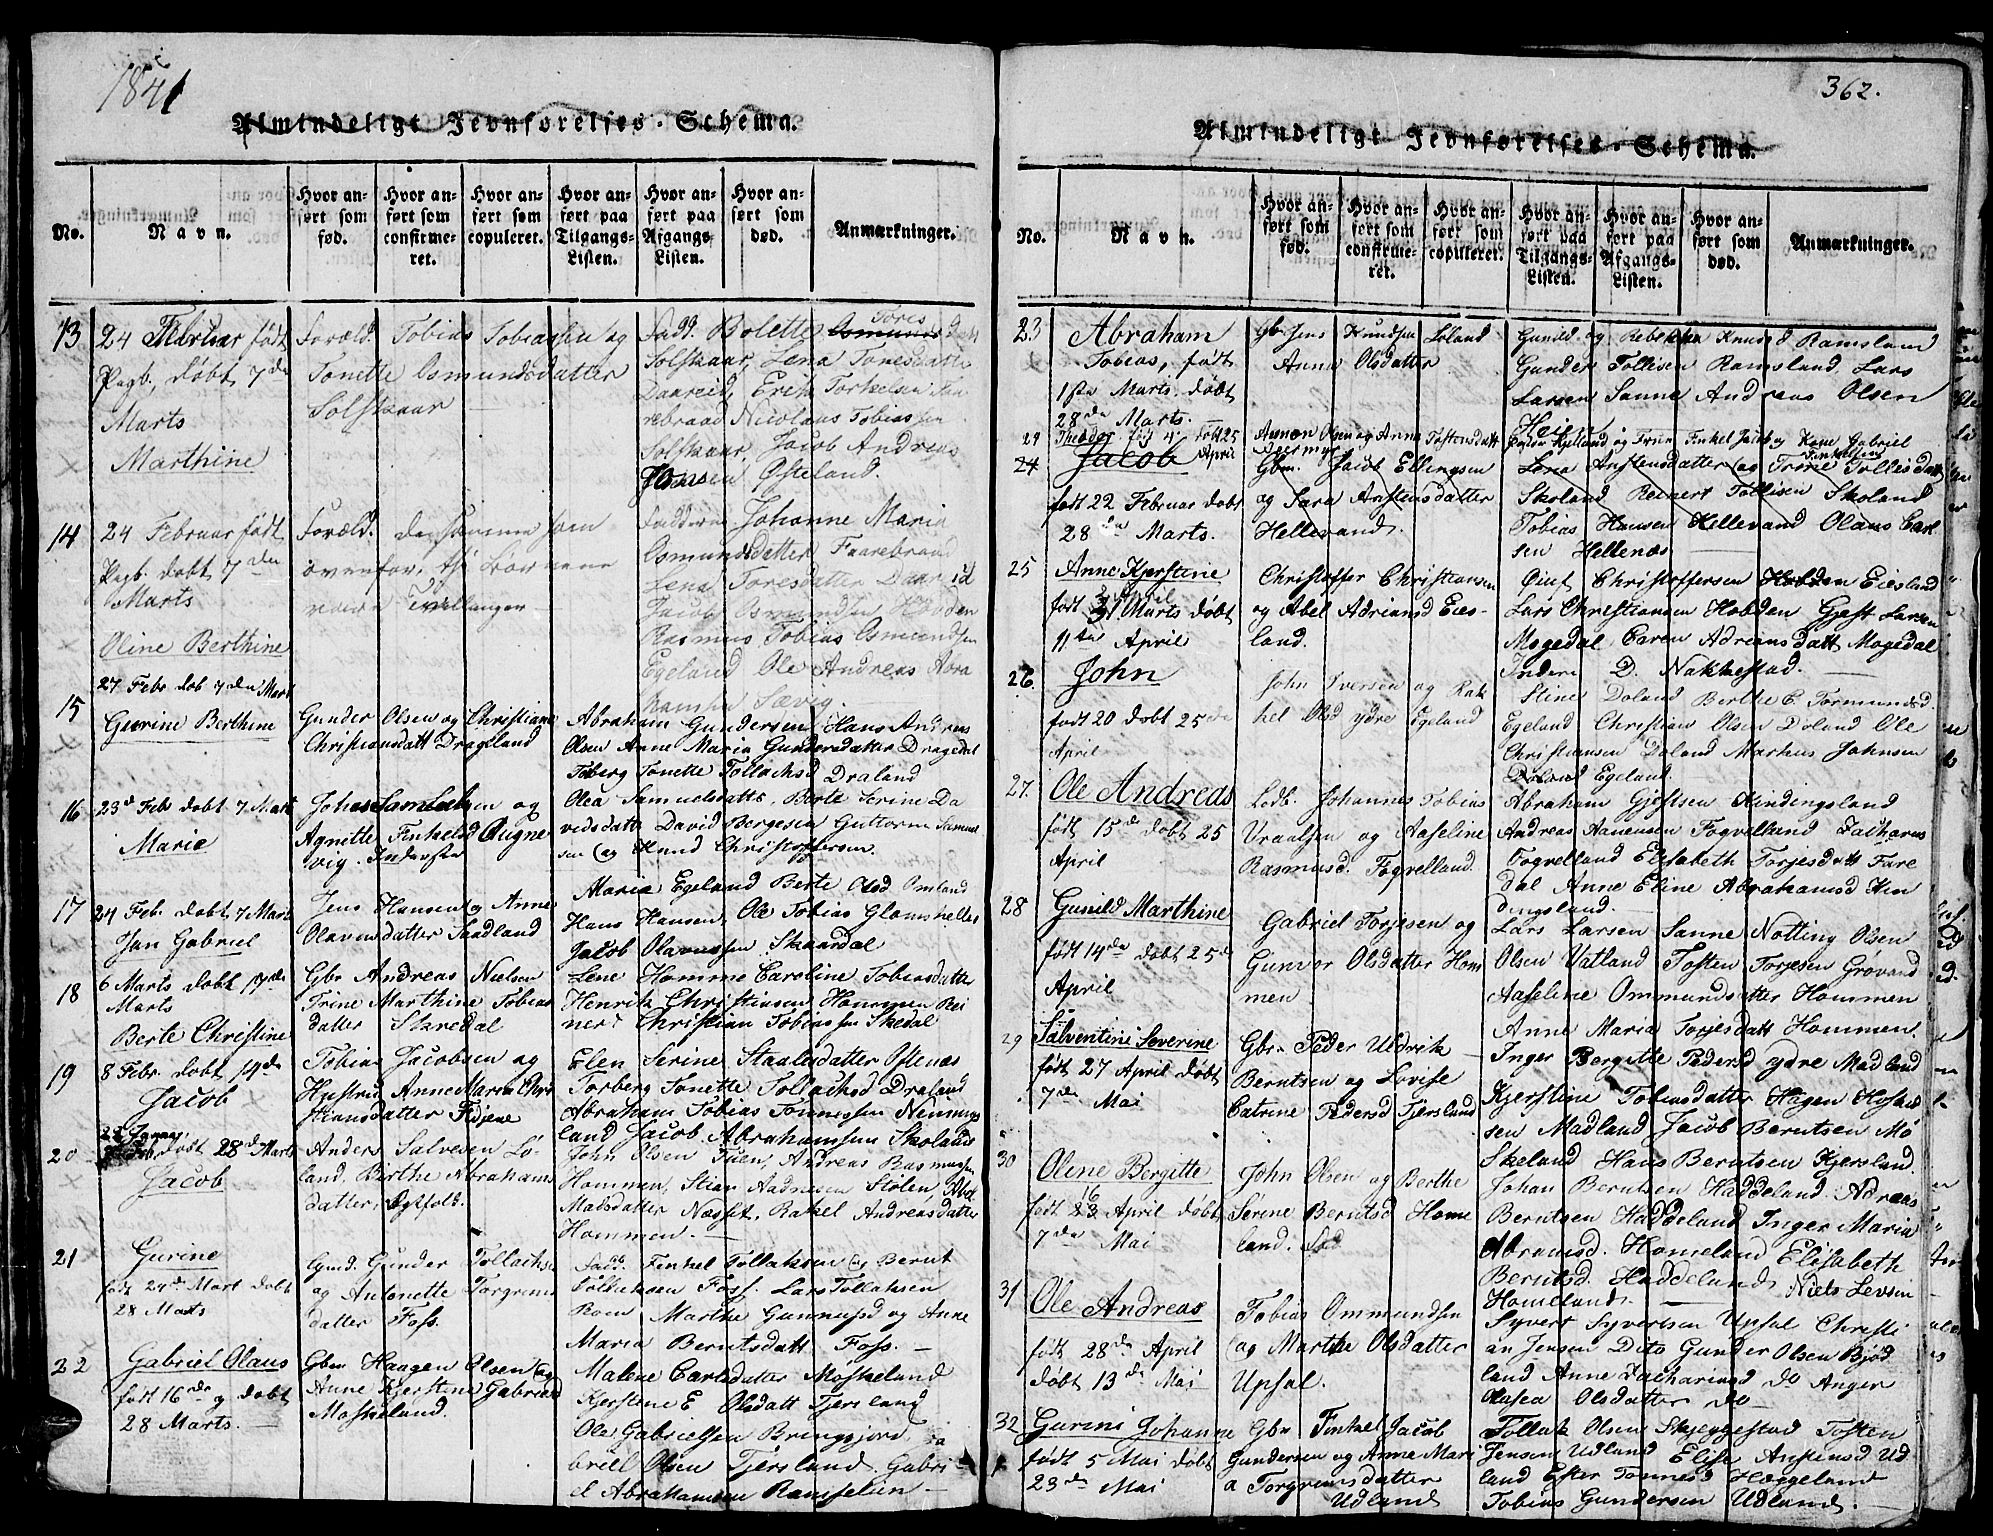 1841
Almindeligt Jevnførelses-Schema.
No.
Navn.
Hvor an-
ført som
fød.
Hvor an-
ført som
confirme-
ret.
Hvor an-
ført som
copuleret.
Hvor an-
ført paa
Tilgangs-
Listen.
Hvor an-
ført paa
Afgangs
Listen.
Hvor an-
ført som
død.
Anmærkninger.
13
24 Februar født
Pagb. døbt 7de
Marts
Marthine
Foræld. Tobias Tobiassen og
Tonette Osmundsdatter
Solskaar
Fadd. Bolette Tores Datt
Solskaar, Lena Toresdatter
Daareid, Erik Torkelsen Faa
rebraad Nicolaus Tobiassen
Solskaar, Jacob Andreas
Østeland.
14
24 Februar født
Pagb. døbt 7de
Marts
Oline Berthine
Foræld. de samme som
ovenfor, thi Børnene
vare Tvillinger
Faddere Johanne Maria
Osmundsdatter Faarebraad
Lena Toresdatter Daareid
Jacob Osmundsen Hovden
Rasmus Tobias Osmundsen
Egeland Ole Andreas Abra
hamsen Sævig.
15
27 Febr døb 7de Mart
Gurine Berthine
Gunder Olsen og Christiane
Christiansdatt Drageland
Abraham Gundersen Hans Andreas
Olsen Anne Maria Gundersdatter Dragedal
Toberg Tonette Tollachsd Draland
16
23d Feb døbt 7 Mart
Marie
Johan Samuelsen og
Agnette Finkelsd Augne
vig. Inderste
Olea Samuelsdatts, Berte Serine Da
vidsdatt David Bergesen Guttorm Samuel
sen og Knud Christoffersen.
17
24 Feb. døbt 7 Mart
Jan Gabriel
Jens Hansen og Anne
Olavusdatter Saadland
Maria Egeland Berte Olsd Omland
Hans Hansen, Ole Tobias Glomshelle
Jacob Olavussen Skaardal
18
6 Marts døbt 19de
Marts
Berte Christine
Gbr Andreas Nielsen
Trine Marthine Tobias
datter Skredal
Lene Homme Caroline Tobiasdatter
Henrik Christensen Hommen Rei
nert Christian Tobiassen Skedal
19
8 Feb. døbt 19de
Jacob
Tobias Jacobsen og
Hustru Anne Maria Chri
stiansdatter Fidjene
Elen Serine Staalesdatter Ostenæs
Torberg Tonette Tollachsd Draland
Abraham Tobias Tonnessen Nenning
land Jacob Abrahamsen Skoland
20
døbt 28de Marts
Jacob
Anders Salvesen Lø-
land, Berthe Abrahams
datter, Egtfolk.
John Olsen Tuen, Andreas Rasmussen
Hommen, Stian Aadnesen Stolen, Abel
Madsdatter Næsset, Rakel Andreasdatter
Hommen.
21
Gurine
født 24de Mart døbt
28 Marts
Gmd. Gunder Tollachsen
og Antonette Torgrims
datter Foss.
Fadd. Finkel Tollaksen og Bernt
Tollachsen Foss. Lars Tollaksen
Rom Marthe Gunnufsd og Anne
Maria Berntsdatt Foss.
22
Gabriel Olaus
født 16de og døbt
28 Marts.
Gbm Haagen Olsen og
Anne Kjerstine Gabrielsd
Moskeland.
Malene Carlsdatter Moskeland
Kjerstene E Olsdatt Tjersland
Ole Gabrielsen Bringsjord Ga
briel Olsen Tjersland, Gabri
el Abrahamsen Ramselien
362.
Almindeligt Jevnførelses-Schema.
No.
Navn.
Hvor an-
ført som
fød.
Hvor an-
ført som
confirme-
ret.
Hvor an-
ført som
copuleret.
Hvor an-
ført paa
Tilgangs-
Listen.
Hvor an-
ført paa
Afgangs-
Listen.
Hvor an-
ført som
død.
Anmærkninger.
23
Abraham
Tobias, født
1ste Marts. døbt
28de Marts.
Gbr Jens Knudsen Loland
Anna Olsdatter
Gunild og Rebekka Knusd Ramsland
Gunder Tollisen Ramsland Lars
Larsen Sanne Andreas Olsen
24
Theodor født 4 døbt 25
April
Aanen Olsen og Anne Tostensdatt
24
Jacob
født 22 Februar døbt
28de Marts.
Gbm. Jacob Ellingsen
og Sara Anstensdatter
Hellevand.
Lena Anstensdatter og Trine Tollisdatt
Skoland Reinert Tollisen Skoland
Tobias Hansen Hellevand Olaus Carl
sen Hellenæs
25
Anne Kjerstine
2 April
født 31 Marts døbt
11te April
Christoffer Christiansen
og Abel Adriansd Eies-
land.
Qiuf Christoffersen Eiesland
Lars Christiansen Hobden Gjest Larsen
Mogedal Caren Adreansdatt Mogedal
Inderi D. Nakkestad.
26.
John
født 20 døbt 25de
April
John Iversen og Rak
hel Olsd ydre Egeland
Stine Doland Berthe C. Tormundsd.
Egeland Christian Olsen Doland Ole
Christiansen Doland Markus Johnsen
Egeland.
27.
Ole Andreas
født 15de døbt 25
April
Ledb. Johannes Tobias
Uraalsen og Aaseline
Rasmusd. Fogvelland.
Abraham Gjestsen Kindingsland
Andreas Aanensen Fogvelland Zacharias
Fogvelland Elisabeth Torjesdatt Fare
dal Anne Eline Abrahamsd Kin
dingsland.
28
Gunild Marthine
født 14de døbt 25de
April
Gabriel Torjesen og
Gunvor Olsdatter Hom
men
Lars Larsen Sanne Notting Olsen
Olsen Vatland Tosten Torjesen Grøvand
Aaseline Ommundsdatter Hommen
Anne Maria Torjesdatt Hommen.
29
Salventini Severine
født 27 April døbt
7de Mai
Gbr. Peder Uldrik
Berntsen og Lovise
Catrine Pedersd Tjersland
Inger Bergitte Pedersd ydre Madland
Kjerstine Tobiasdatter Hagen Hoskud
sen Madland Jacob Berntsen Mo
skeland Hans Berntsen Kjersland.
30
Oline Bergitte
16
født April døbt
7de Mai
John Olsen og Berthe
Serine Berntsd Home
land.
Johan Berntsen Haddeland. Adreas
Berntsen Haddeland Inger Maria
Abramsd. Homeland Elisabeth
Berntsd. Haddeland Niels Levsen
Homeland.
31
Ole Andreas
født 28de April
døbt 13de Mai
Tobias Ommundsen
og Marthe Olsdatter
Upsal.
Syvert Syvertsen Upsal Christi
an Jensen Dito Gunder Olsen Bjød
land Anne Zachariasd do Anger
Aasea Olsdatter do
32
Gurini Johanne
født 5 Mai døbt
23de Mai
Gbr Finkel Jacob
Gundersen og Anne Mari
a Torgrimsdatter
Udland
Tollak Olsen Skjeggestad Tosten
Jensen Udland Elise Anstensd Ud
land Ester Tonnesd Hæggeland
Tobias Gundersen Udland.